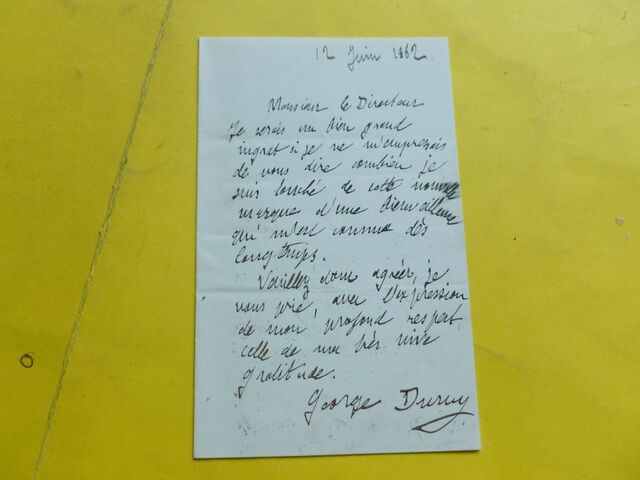 12 Juin 1882
Monsieur le Directeur
Je serais un bien grand
ingrat si je ne m'empressais
de vous dire combien je
suis touché de cette nouvelle
marque d'une bienveillance
qui m'est connue dès
longtemps.
Veuillez donc agréer, je
vous prie, avec l'expression
de mon profond respect,
celle de ma très vive
gratitude.
George Duruy